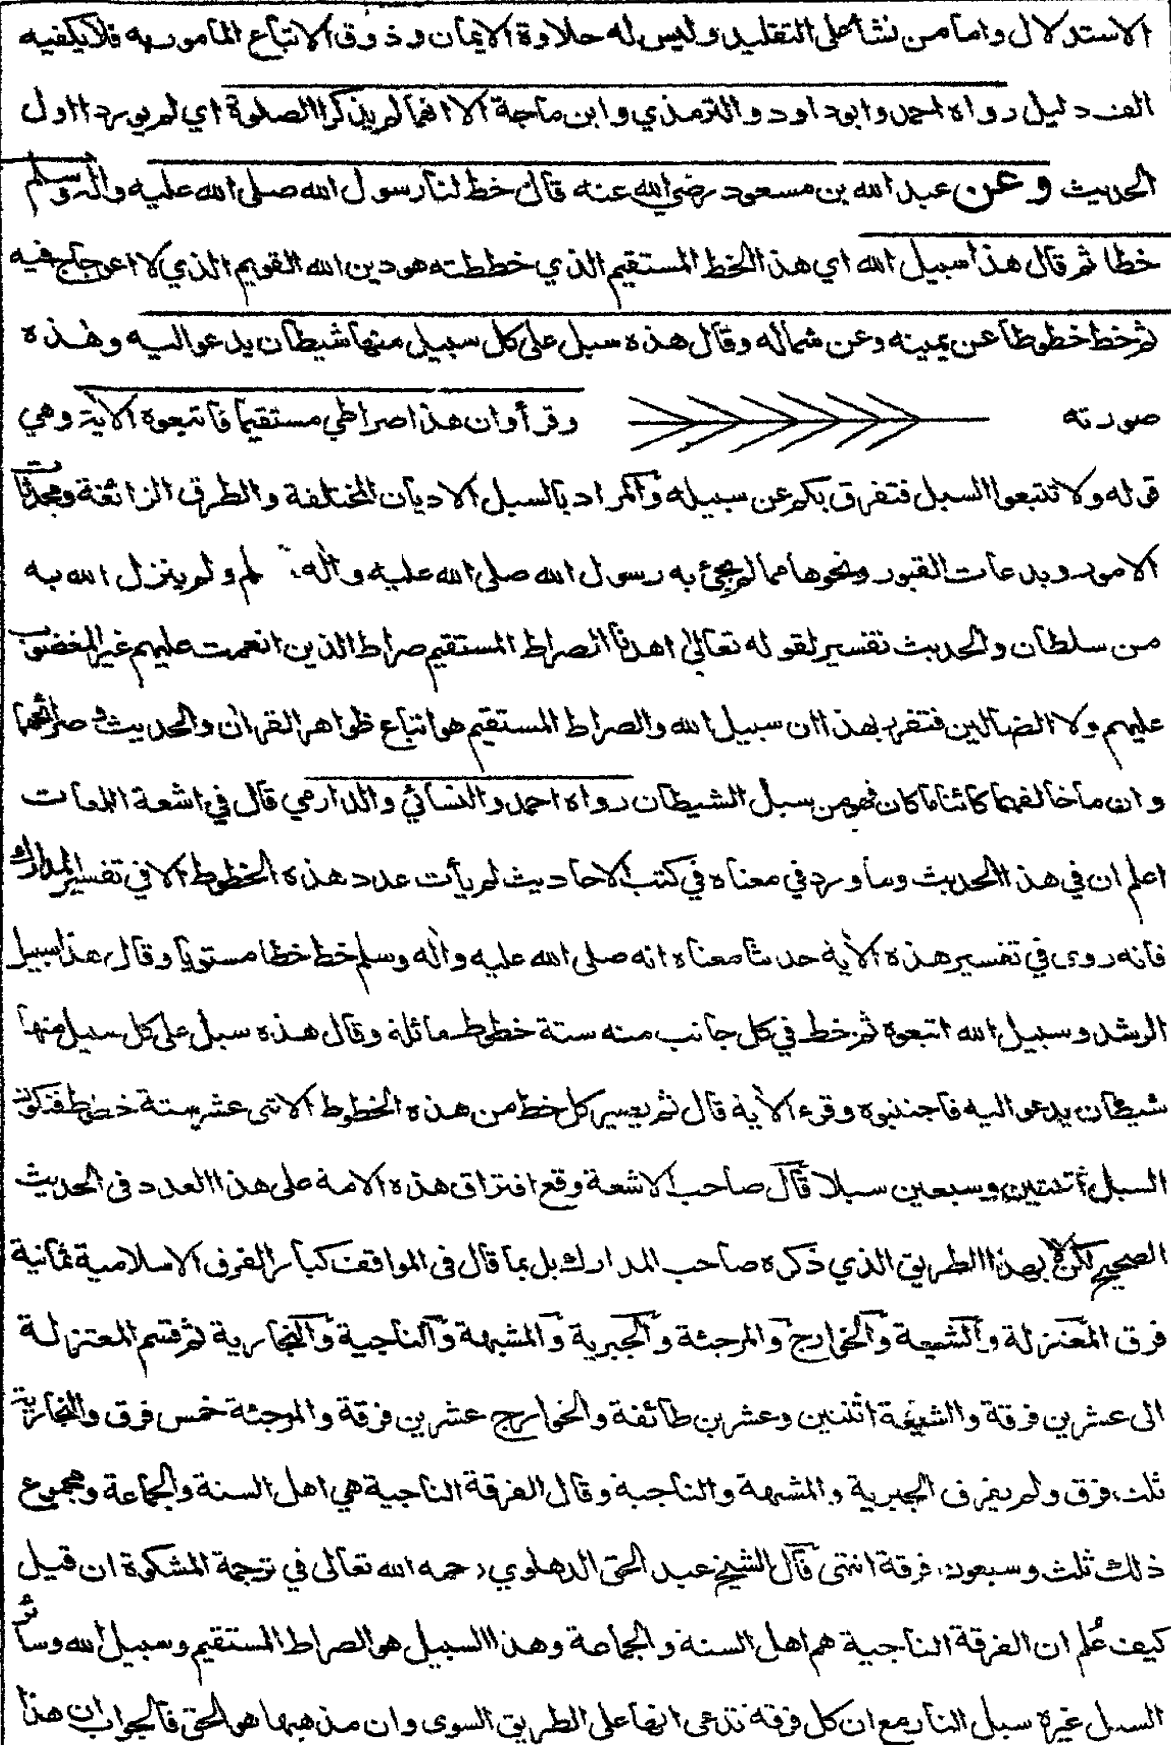 الاستدلال واما من نشأ على التقليد وليس له حلاوة الايمان وذوق الاتباع المأمور به فلا يكفيه
الف دليل رواه احمد وابو داود والترمذي وابن ماجة الا انهما لم يذكرا الصلوة اي لم يوردا اول
الحديث وعن عبد الله بن مسعود رضي الله عنه قال خط لنا رسول الله صلى الله عليه واله وسلم
خطا ثم قال هذا سبيل الله اي هذا الخط المستقيم الذي خططته هو دين الله القويم الذي لا اعوجاج فيه
ثم خط خطوطا عن يمينه وعن شماله وقال هذه سبل على كل سبيل منها شيطان يدعو اليه وهذه
صورته وقرأ وان هذا صراطي مستقيما فاتبعوه الأية وهي
قوله ولا تتبعوا السبل فتفرق بكم عن سبيله والمراد بالسبل الاديان المختلفة والطرق الزائغة ومحدثات
الامور وبدعات القبور ونحوها مما لم يجئ به رسول الله صلى الله عليه واله لم ولم ينزل الله به
من سلطان والحديث تفسير لقوله تعالى اهدنا الصراط المستقيم صراط الذين انعمت عليهم غير المغضوب
عليهم ولا الضالين فتقرر بهذا ان سبيل الله والصراط المستقيم هو اتباع ظواهر القران والحديث وصرائحهما
وان ما خالفهما كائنا ما كان فهو من سبل الشيطان رواه احمد والنسائي والدارمي قال في اشعة اللمعات
اعلم ان في هذا الحديث وما ورد في معناه في كتب الاحاديث لم يأت عدد هذه الخطوط الا في تفسير المدارك
فانه روى في تفسير هذه الأية حديثا معناه انه صلى الله عليه واله وسلم خط خطا مستويا وقال هذا سبيل
الرشد وسبيل الله اتبعوه ثم خط في كل جانب منه ستة خطوط مائلة وقال هذه سبل على كل سبيل منها
شيطان يدعو اليه فاجتنبوه وقرء الأية قال ثم يصير كل خط من هذه الخطوط الاثنى عشر ستة خطوط فتكون
السبل اثنتين وسبعين سبلا قال صاحب الاشعة وقع افتراق هذه الامة على هذا العدد فى الحديث
الصحيح لكن لا بهذا الطريق الذي ذكره صاحب المدارك بل بما قال فى المواقف كبائر الفرق الاسلامية ثمانية
فرق المعتزلة والشيعة والخوارج والمرجئة والجبرية والمشبهة والناجية والنجارية ثم قسم المعتزلة
الى عشرين فرقة والشيعة اثنين وعشرين طائفة والخوارج عشرين فرقة والمرجئة خمس فرق والنجارية
ثلث فرق ولم يفرق الجبرية والمشبهة والناجية وقال الفرقة الناجية هي اهل السنة والجماعة ومجموع
ذلك ثلث وسبعون فرقة انتهى قال الشيخ عبد الحق الدهلوي رحمه الله تعالى في ترجمة المشكوة ان قيل
كيف عُلم ان الفرقة الناجية هم اهل السنة والجماعة وهذا السبيل هو الصراط المستقيم وسبيل الله وسائر
السبل غيره سبل النار مع ان كل فرقة تدعى انها على الطريق السوى وان مذهبها هو الحق فالجواب ان هذا